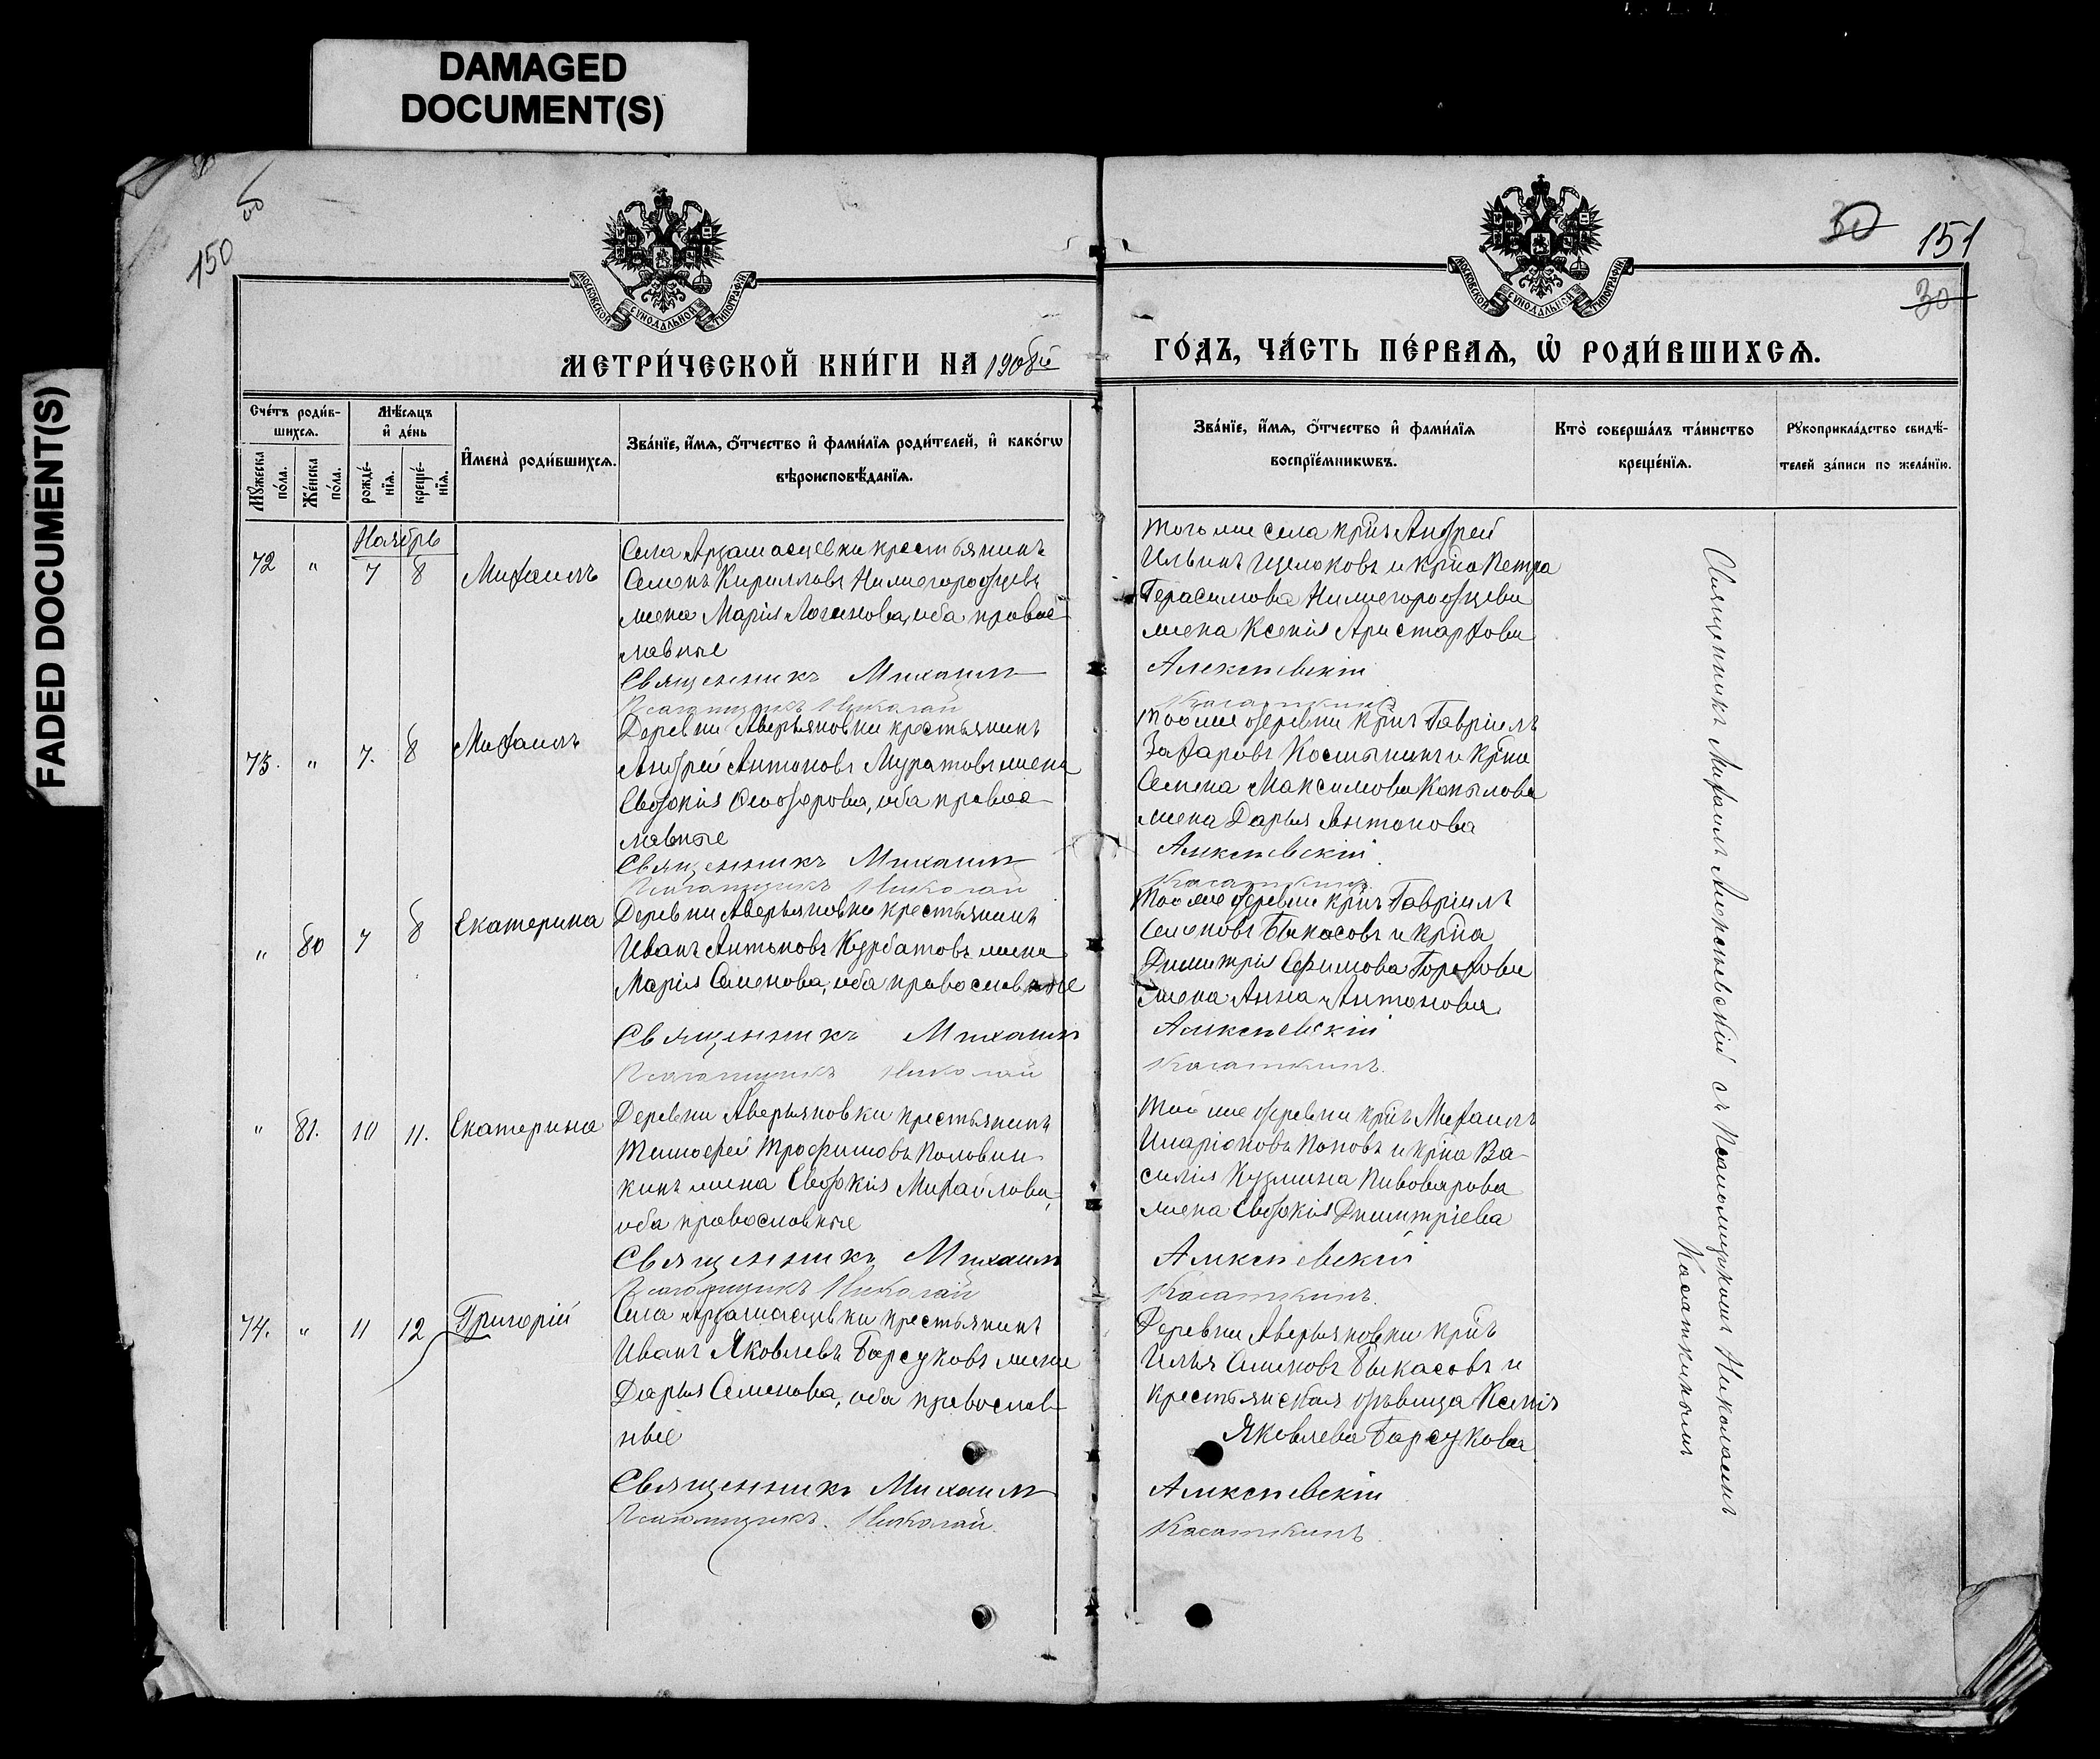 DAMAGED
DOCUMENT(S)
FADED DOCUMENT(S)
150
30
151
30
МОСКОВСКОЙ СѴНОДАЛЬНОЙ ТИПОГРАФІИ
МОСКОВСКОЙ СѴНОДАЛЬНОЙ ТИПОГРАФІИ
МЕТРИ́ЧЕСКОЙ КНИ́ГИ НА 1908й
ГО́ДЪ, ЧА́СТЬ ПЕ́РВАѦ, Ѡ҆ РОДИ́ВШИХСѦ.
Сче́тъ роди́в-
шихсѧ.
Мѣ́сѧцъ
и҆ де́нь
Мꙋ́жеска
по́ла.
Же́нска
по́ла.
рожде́-
нїѧ.
креще́-
нїѧ.
И҆мена̀ роди́вшихсѧ.
Зва́нїе, и҆́мѧ, ѻ҆́тчество и҆ фами́лїѧ роди́телей, и҆ како́гѡ
вѣроисповѣ́данїѧ.
Зва́нїе, и҆́мѧ, ѻ҆́тчество и҆ фами́лїѧ
воспрїе́мникѡвъ.
Кто̀ соверша́лъ та́инство
креще́нїѧ.
Рꙋкоприкла́дство свидѣ́-
телей за́писи по жела́нїю.
Ноябрь
72 " 7 8 Михаилъ
Села Арзамасцевки крестьянинъ
Семенъ Кирилловъ Нижегородцевъ
жена Марія Логинова, оба правос-
лавные
Священникъ Михаилъ
Псаломщикъ Николай
Тогоже села крнъ Андрей
Ильинъ Щелоковъ и крна Петра
Герасимова Нижегородцева
жена Ксенія Аристархова
Алексѣевскій
Касаткинъ
73. " 7. 8 Михаилъ
Деревни Аверьяновки крестьянинъ
Андрей Антоновъ Муратовъ жена
Евдокія Ѳеодорова, оба правос-
лавные
Священникъ Михаилъ
Псаломщикъ Николай
Тойже деревни крнъ Гавріилъ
Захаровъ Костынинъ и крна
Семена Максимова Копылова
жена Дарья Антонова
Алексѣевскій.
Касаткинъ
" 80 7 8 Екатерина
Деревни Аверьяновки крестьянинъ
Иванъ Антоновъ Курбатовъ жена
Марія Семенова, оба православные
Священникъ Михаилъ
Псаломщикъ Николай
Тойже деревни крнъ Гавріилъ
Семеновъ Быкасовъ и крна
Димитрія Ефимова Горохова
жена Анна Антонова
Алексѣевскій
Касаткинъ.
" 81. 10 11. Екатерина
Деревни Аверьяновки крестьянинъ
Тимофей Трофимовъ Половин-
кинъ жена Евдокія Михайлова,
оба православные
Священникъ Михаилъ
Псаломщикъ Николай
Тойже деревни крнъ Михаилъ
Иларіоновъ Поповъ и крна Ва-
силія Кузмина Пивоварова
жена Евдокія Димитріева
Алексѣевскій
Касаткинъ.
74. " 11 12 Григорій
Села Арзамасцевки крестьянинъ
Иванъ Яковлевъ Барсуковъ жена
Дарья Семенова, оба православ-
ные
Священникъ Михаилъ
Псаломщикъ. Николай.
Деревни Аверьяновки крнъ
Илья Семеновъ Быкасовъ и
крестьянская дѣвица Ксенія
Яковлева Барсукова
Алексѣевскій
Касаткинъ.
Священникъ Михаилъ Алексѣевскій съ Псаломщикомъ Николаемъ
Касаткинымъ